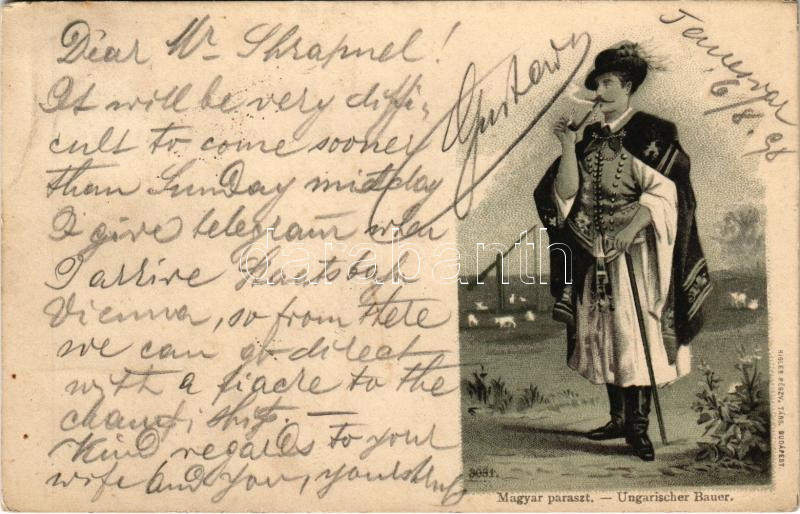 Dear Mr Shrapnel!
It will be very diffi-
cult to come sooner
than Sunday midday
I give telegram when
I arrive Staatsbah
Vienna, so from there
we can go direct
with a fiacre to the
championships. —
Kind regards to your
wife and you, yours truly
Gustav
Temesvar
6/8. 98
darabanth
3081.
Magyar paraszt. — Ungarischer Bauer.
RIGLER RÉSZV. TÁRS. BUDAPEST.